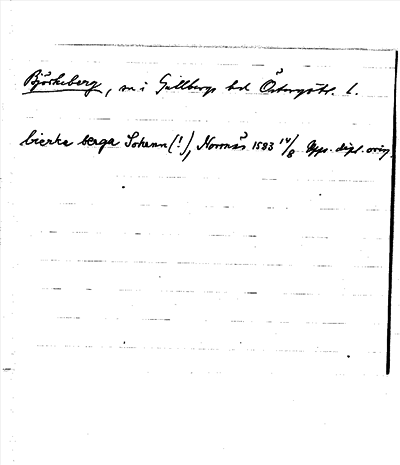 Björkeberg, sn i Gullbergs hd Östergötl. l.
bierke berga Sokenn (!), Norrnäs 1583 14/8 Upps. dipl. orig.